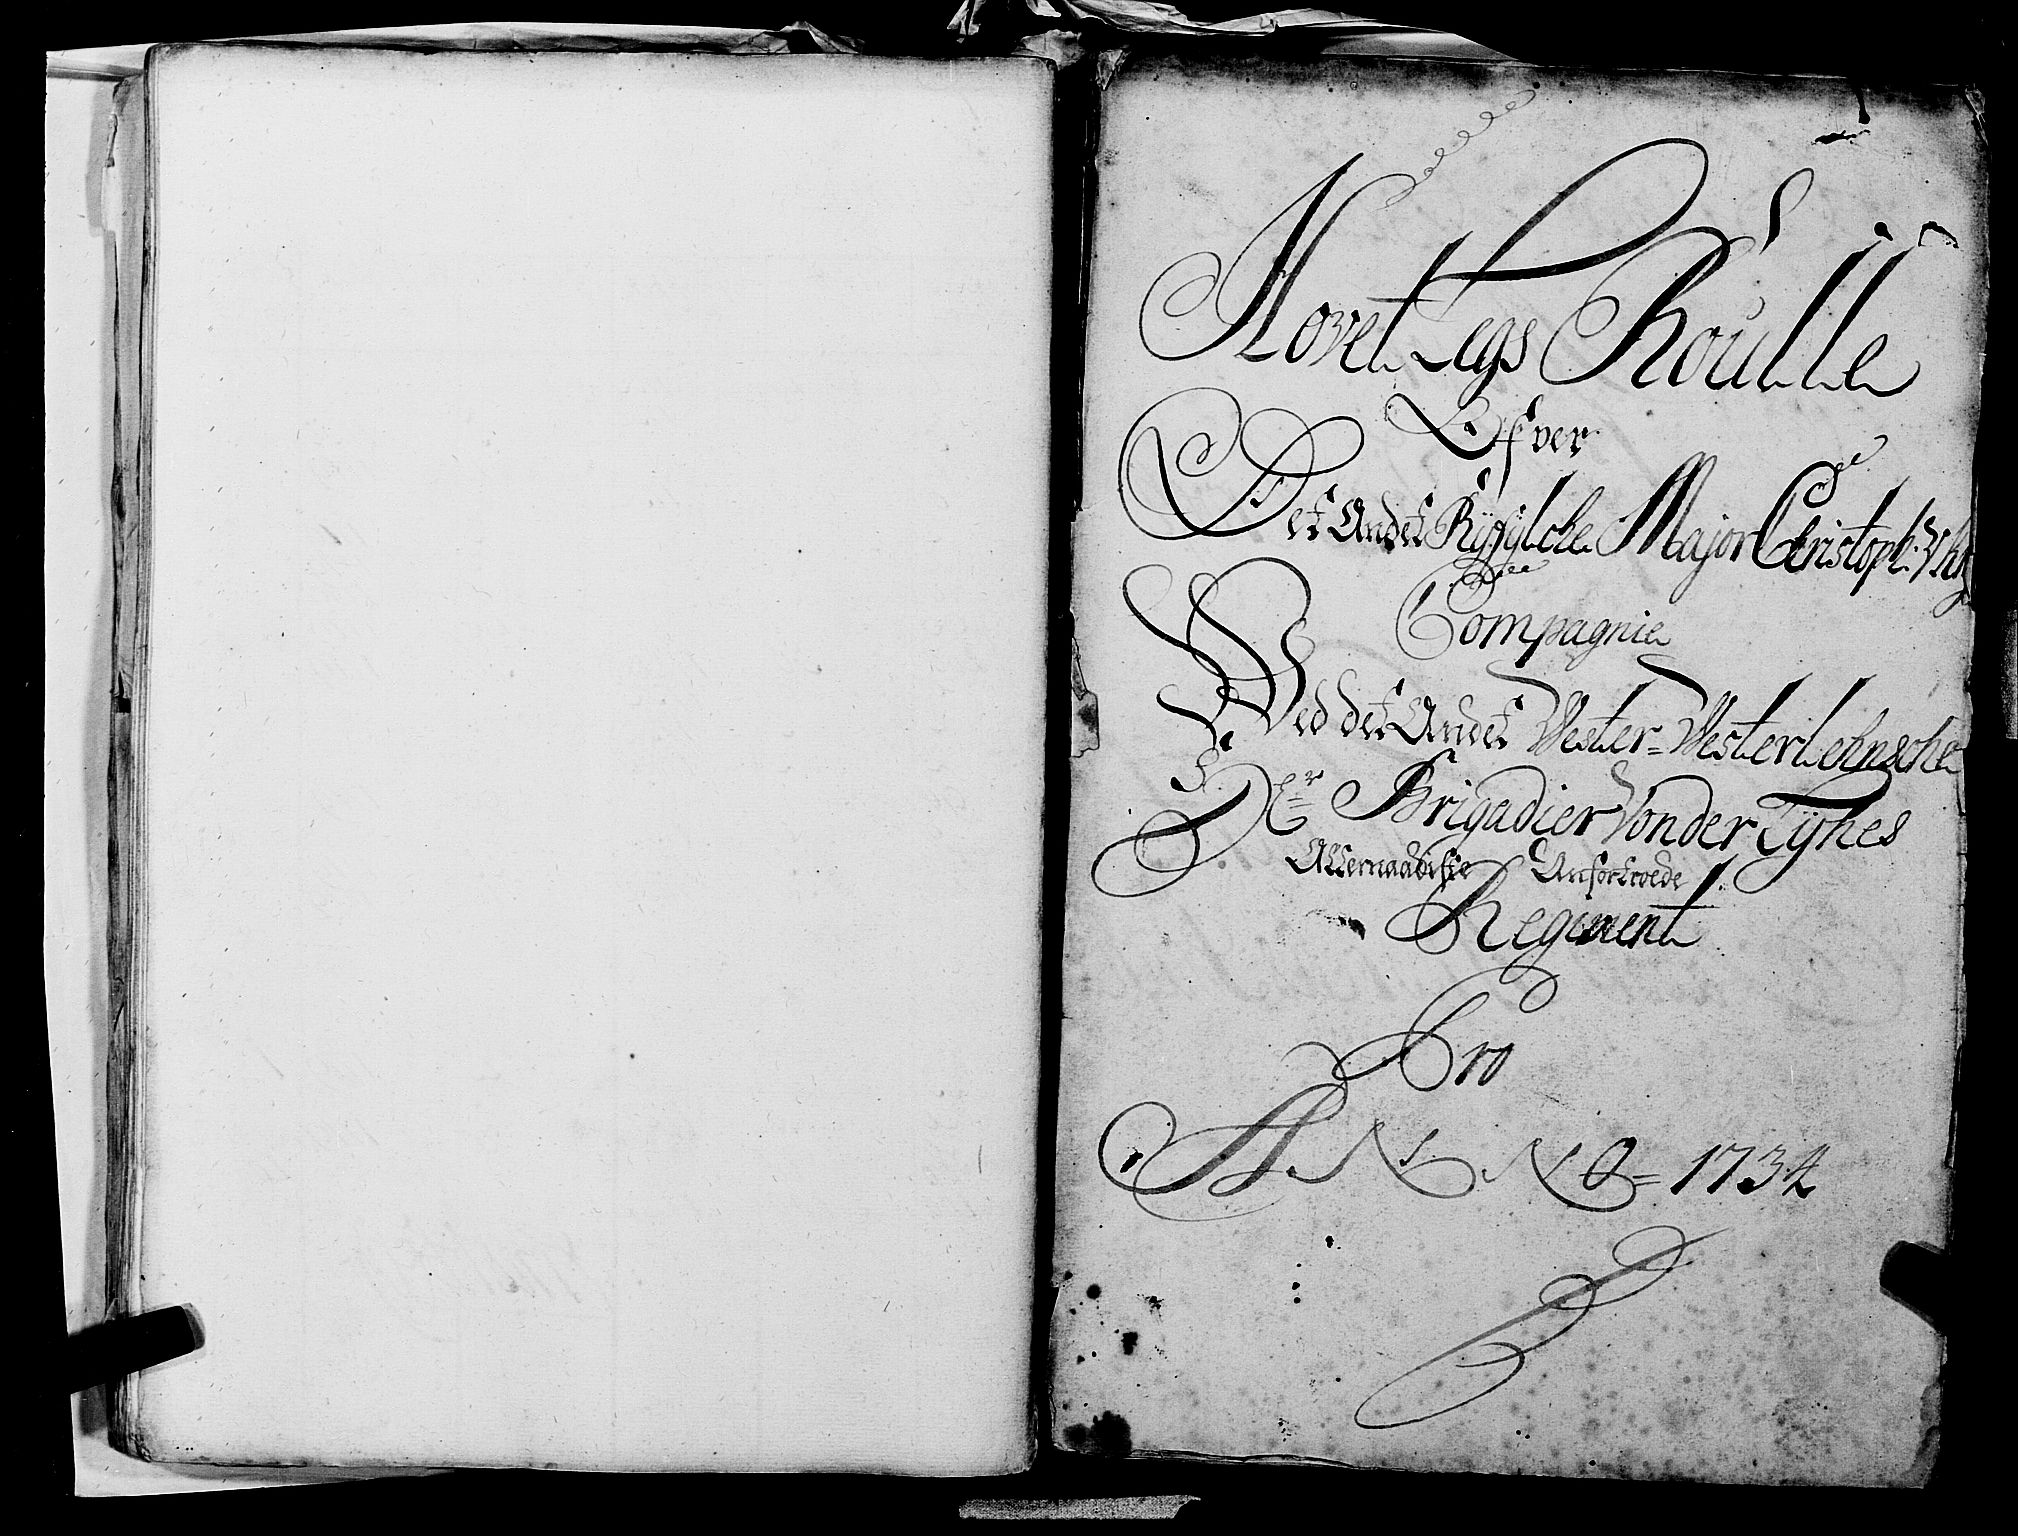 Hovet Legs Roulle
Ofver
Det Andet Ryfylcke Major Christoph:
Compagnie
Ved det Andet Vester=Westerlehnsche
Hr Brigadier Von der Tÿhes
Allernaadigste Anfortroede
Regiment
Pro
ANNO=1734